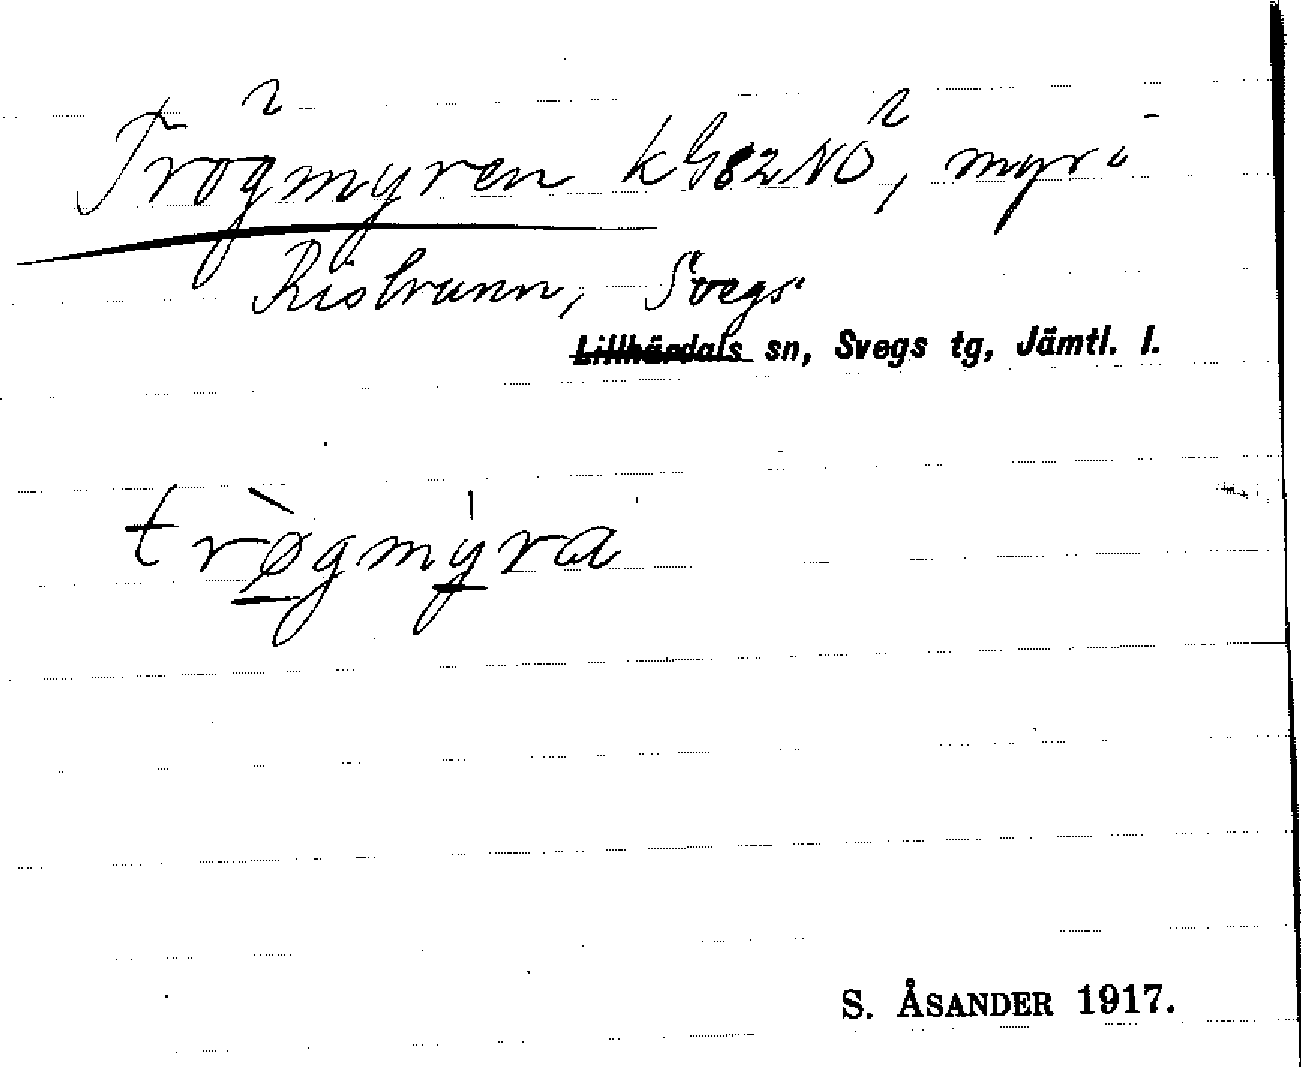 Trögmyren k G82NO, myr i
Risbrunn, Svegs
Lillhärdals sn, Svegs tg, Jämtl. l.
trø̀gmýra
S. ÅSANDER 1917.